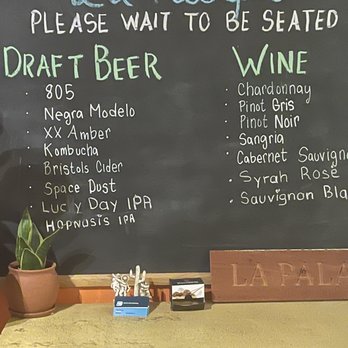 PLEASE WAIT TO BE SEATED
DRAFT BEER
· 805
· Negra Modelo
· XX Amber
· Kombucha
· Bristols Cider
· Space Dust
· Lucy Day IPA
· HOPNOSIS IPA
WINE
· Chardonnay
· Pinot Gris
· Pinot Noir
· Sangria
· Cabernet Sauvign
· Syrah Rosé
· Sauvignon Bla
LA PALA